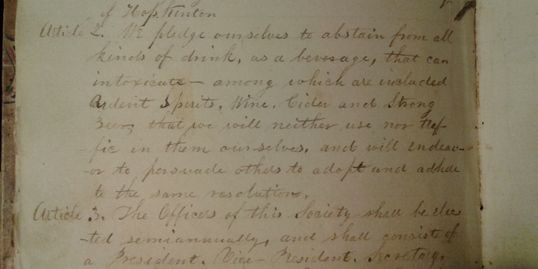 of Hopkinton
Article 2. We pledge ourselves to abstain from all
kinds of drink, as a beverage, that can
intoxicate – among which are included
Ardent Spirits, Wine, Cider and Strong
Beer, that we will neither use nor traf-
-fic in them ourselves, and will endeav-
-or to persuade others to adopt and adhde
to the same resolution.
Article 3. The Officers of this Society shall be elec-
-ted semiannually, and shall consist of
a President, Vice-President, Secretary,